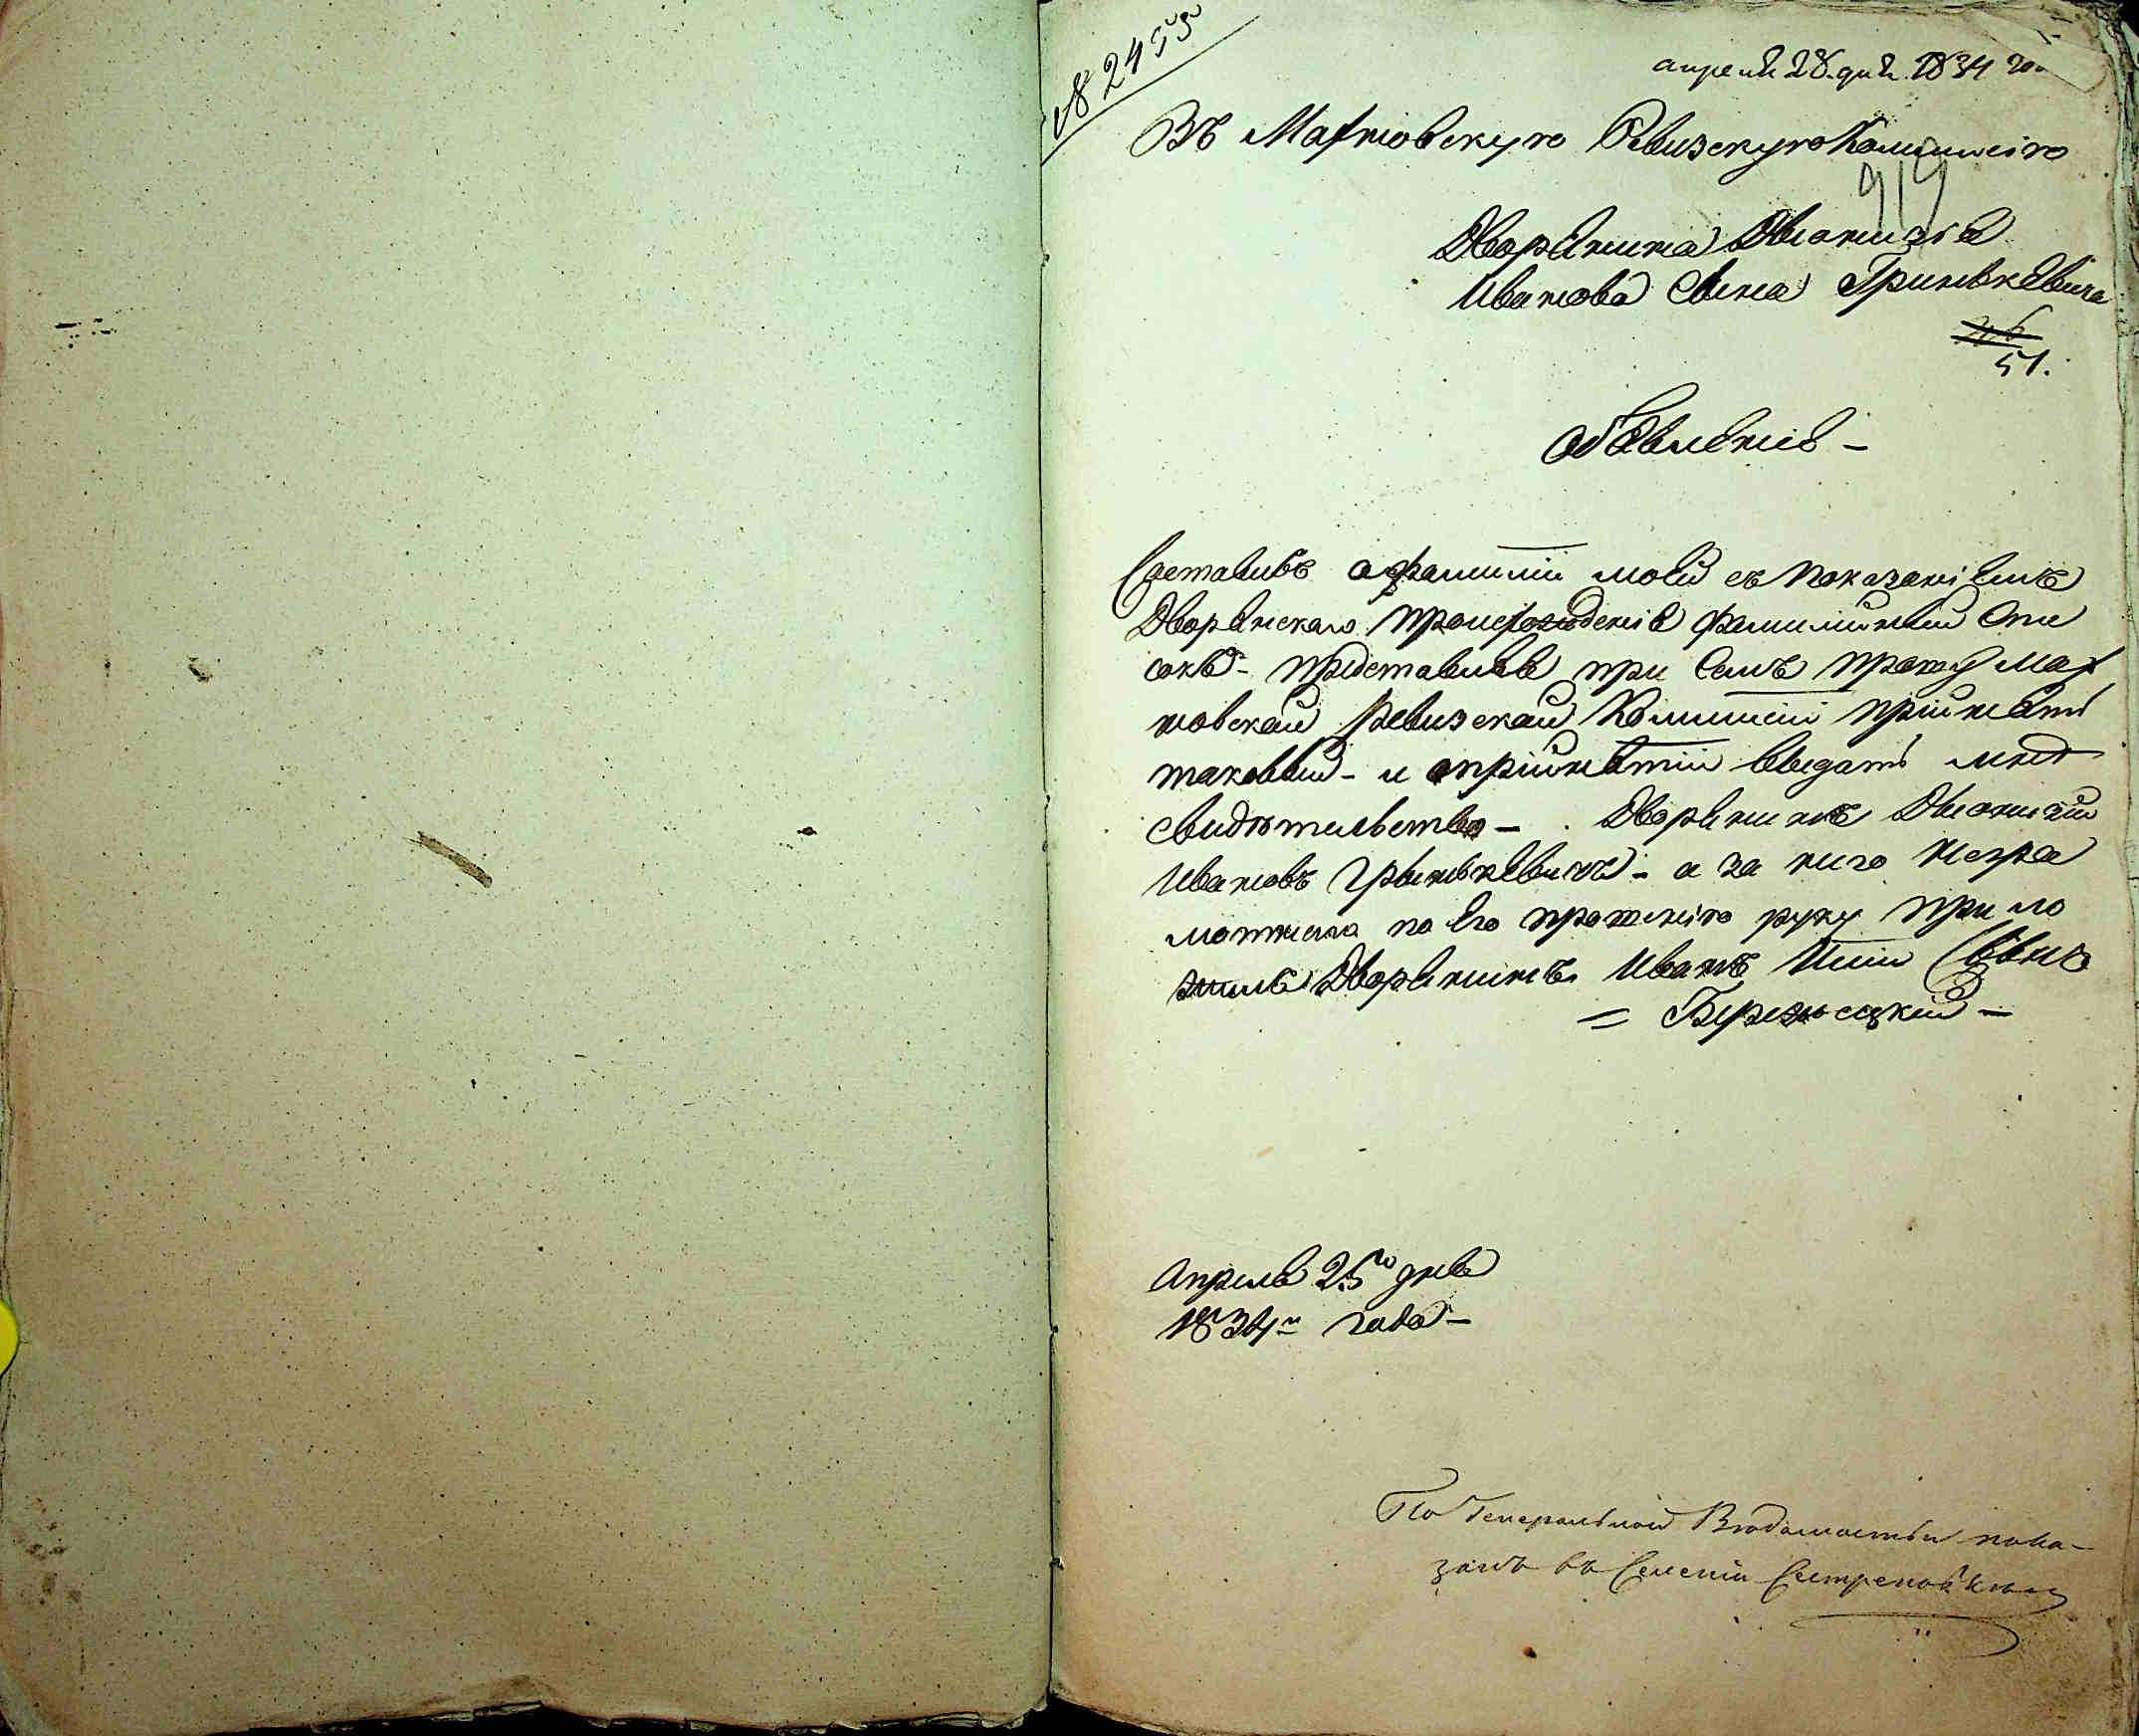 № 2455
апреля 28. дня. 1834 го
Въ Махновскую Ревизскую Коммисію
919
Дворянина Діонизія
Иванова Сына Гриневкевича
51.
объявленіе -
Составивъ о фамиліи моей съ показаніемъ
Дворянскаго происхожденія фамилійный Спи
сокъ - представивъ при Семъ прошу Мах
новской Ревизской Коммисіи прійнять
таковый - и о прійнятіи выдать мнѣ
свидѣтельство - Дворянинъ Діонизій
Ивановъ Гриневкевичъ - а за него неgра
мотнаго по Его прошенію руку прило
жилъ Дворянинъ Иванъ Сынъ
= Березовскій -
Апреля 25го дня
1834го года -
По Генеральной Вѣдомости пока-
занъ въ Селеніи